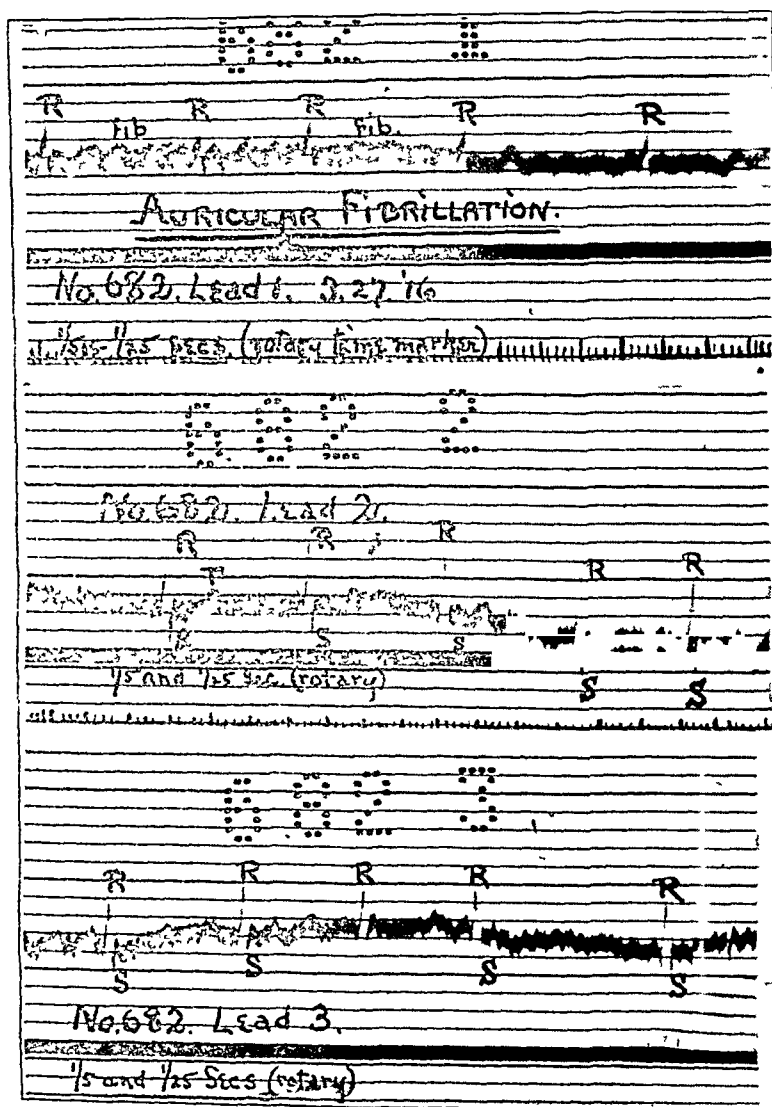 682 1
R R R R R
Fib Fib.
AURICULAR FIBRILLATION.
No. 682. Lead 1. 3.27.'16
1/5 1/25 Secs. (rotary time marker)
682 2
No. 682. Lead 2.
R R R R R
T
S S S S S
1/5 and 1/25 Sec. (rotary)
682 3
R R R R R
S S S S
No. 682. Lead 3.
1/5 and 1/25 Secs (rotary)